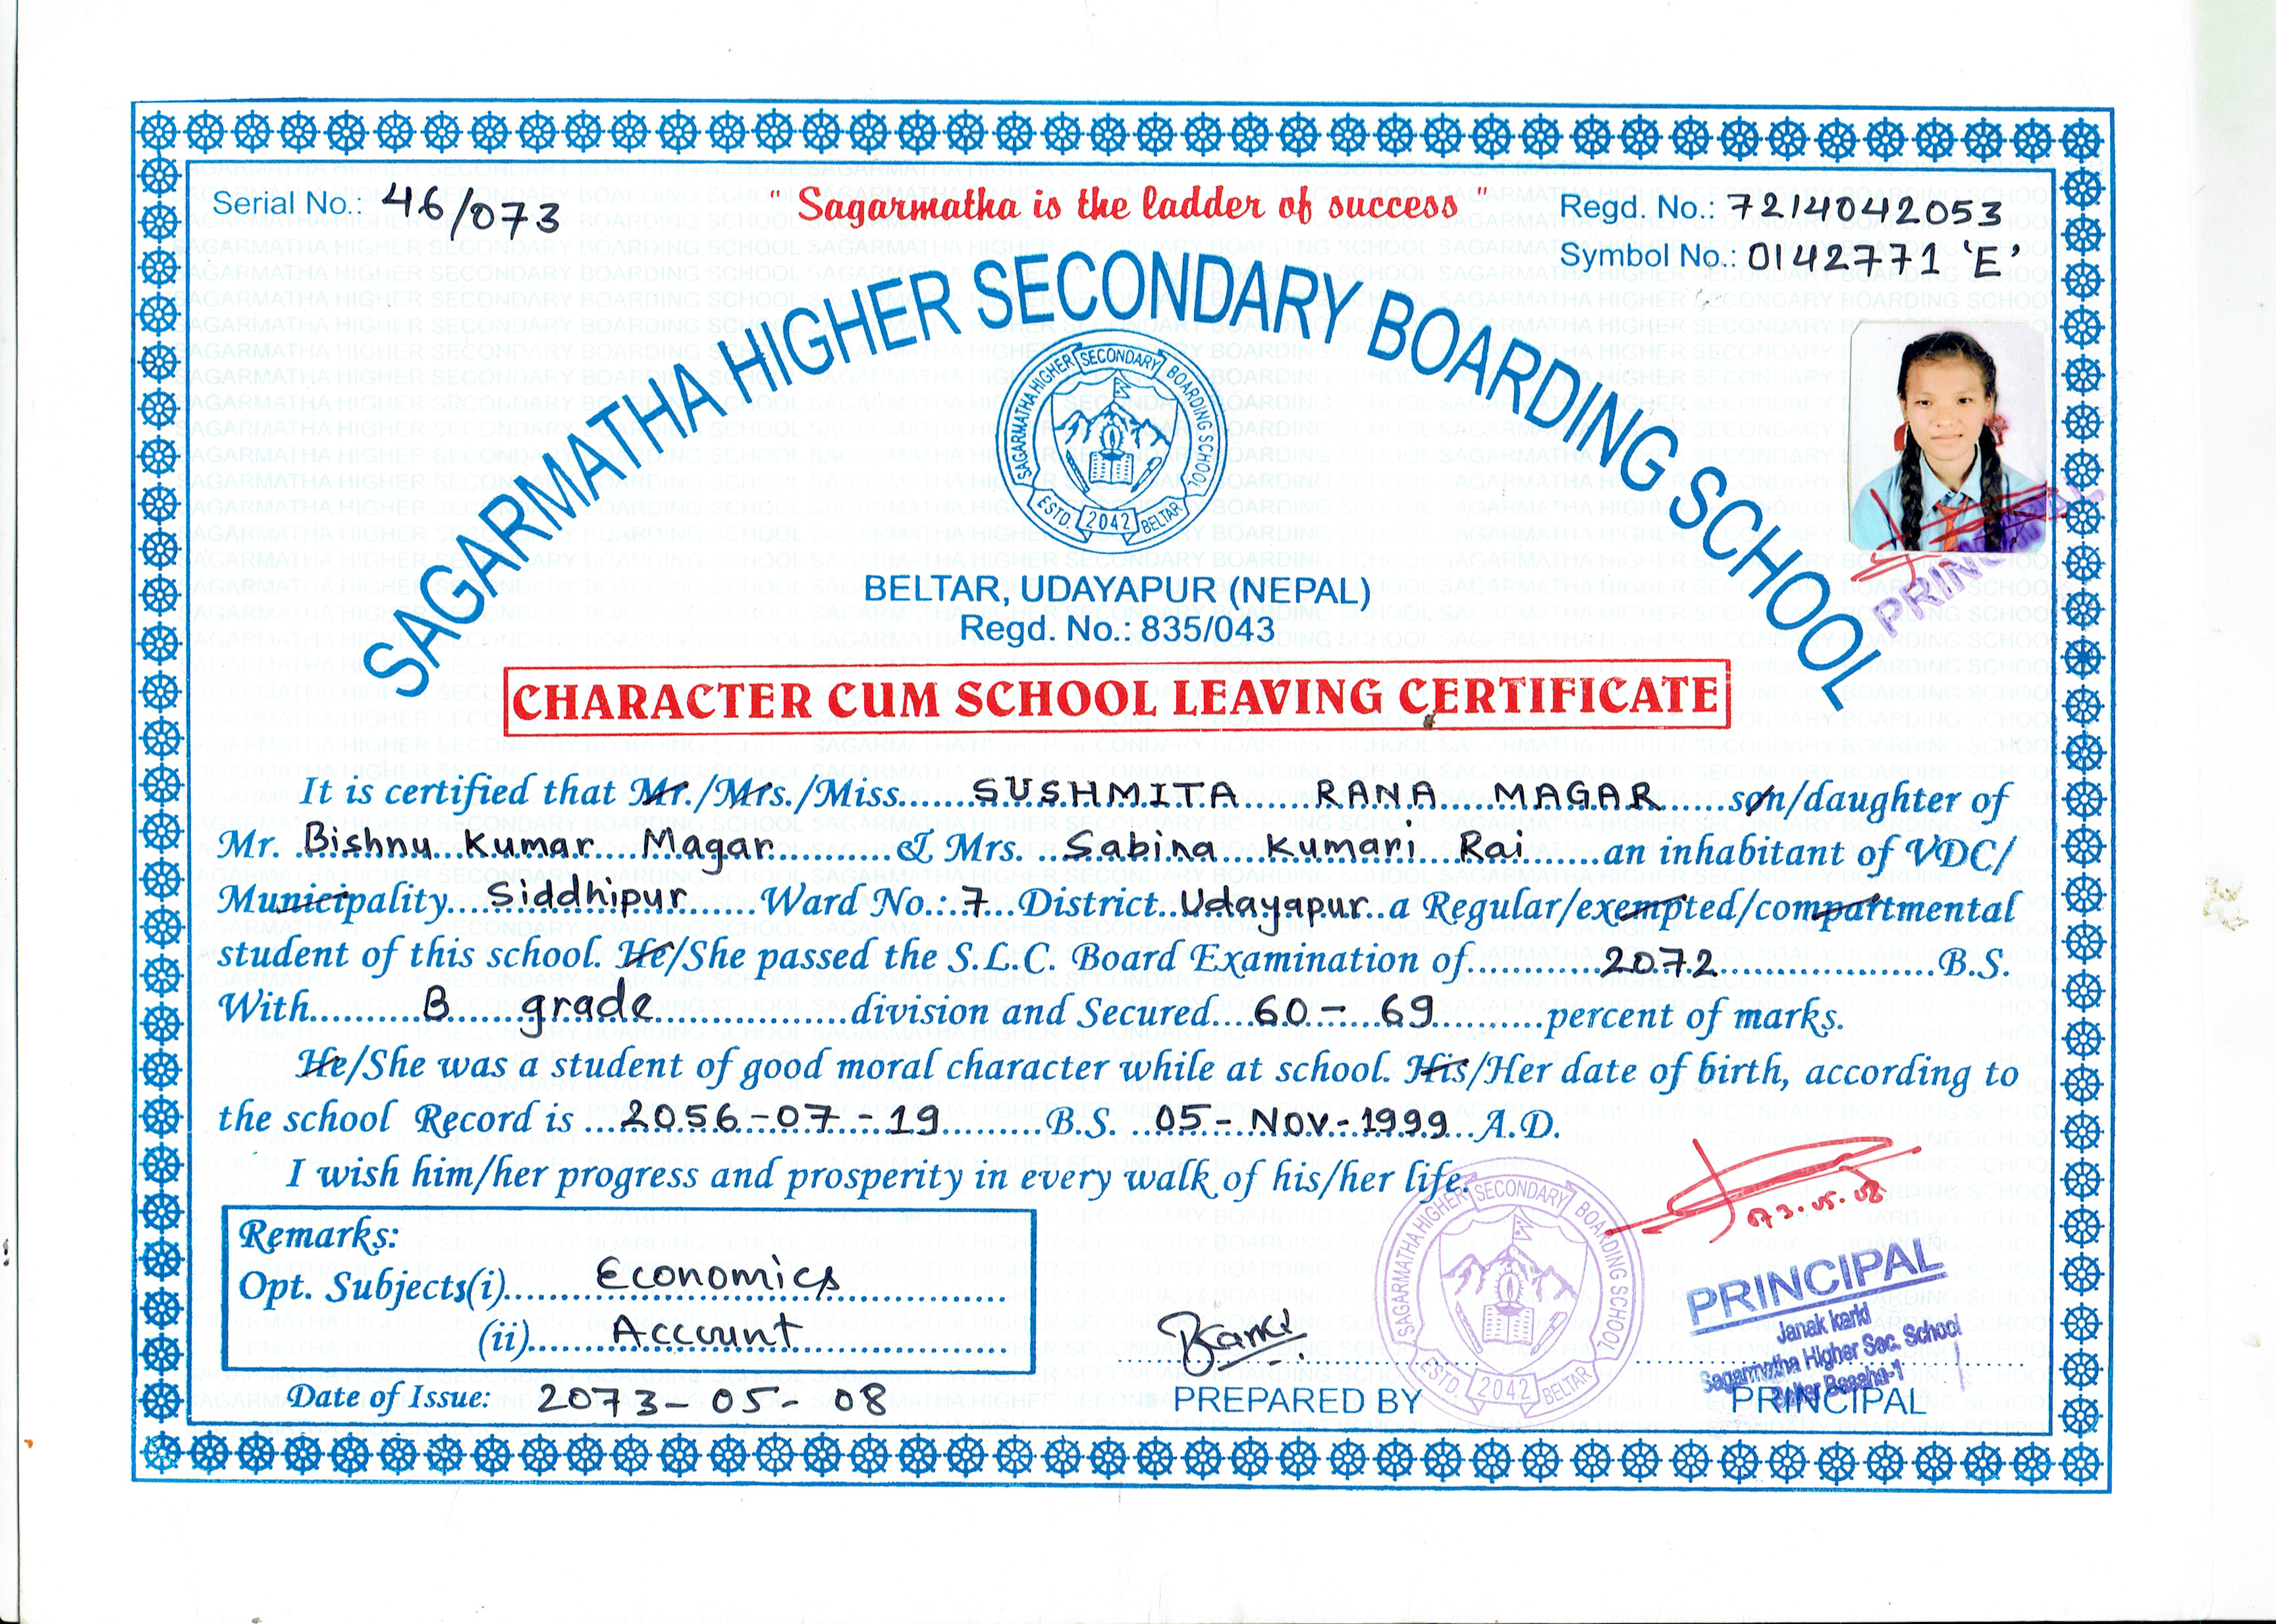 Serial No.: 46/073
" Sagarmatha is the ladder of success "
Regd. No.: 7214042053
Symbol No.: 0142771 'E'
SAGARMATHA HIGHER SECONDARY BOARDING SCHOOL
SAGARMATHA HIGHER SECONDARY BOARDING SCHOOL
ESTD. 2042 BELTAR
PRINCIPAL
BELTAR, UDAYAPUR (NEPAL)
Regd. No.: 835/043
CHARACTER CUM SCHOOL LEAVING CERTIFICATE
It is certified that Mr./Mrs./Miss......SUSHMITA RANA MAGAR......son/daughter of
Mr. Bishnu Kumar Magar & Mrs. Sabina Kumari Rai an inhabitant of VDC/
Municipality Siddhipur Ward No.: 7 District Udayapur a Regular/exempted/compartmental
student of this school. He/She passed the S.L.C. Board Examination of 2072 B.S.
With B grade division and Secured 60 - 69 percent of marks.
He/She was a student of good moral character while at school. His/Her date of birth, according to
the school Record is 2056-07-19 B.S. 05-Nov-1999 A.D.
I wish him/her progress and prosperity in every walk of his/her life.
Remarks:
Opt. Subjects(i) Economics
(ii) Account
Date of Issue: 2073-05-08
PREPARED BY
SAGARMATHA HIGHER SECONDARY BOARDING SCHOOL
ESTD. 2042 BELTAR
PRINCIPAL
Janak karki
Sagarmatha Higher Sec. School
PRINCIPAL